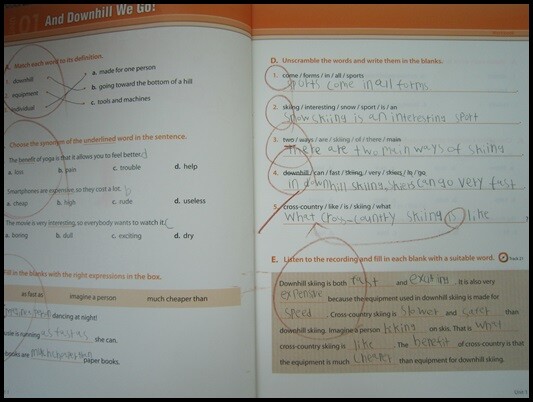 01 And Downhill We Go!
A. Match each word to its definition.
1. downhill
a. made for one person
2. equipment
b. going toward the bottom of a hill
individual
c. tools and machines
Choose the synonym of the underlined word in the sentence.
The benefit of yoga is that it allows you to feel better. d
a. loss b. pain c. trouble d. help
Smartphones are expensive, so they cost a lot. b
a. cheap b. high c. rude d. useless
The movie is very interesting, so everybody wants to watch it.
a. boring b. dull c. exciting d. dry
Fill in the blanks with the right expressions in the box.
as fast as imagine a person much cheaper than
dancing at night!
is running as fast as she can.
books are much cheaper than paper books.
D. Unscramble the words and write them in the blanks.
1. come / forms / in / all / sports
sports come in all forms
2. skiing / interesting / snow / sport / is / an
Snow skiing is an interesting sport
3. two / ways / are / skiing / of / there / main
There are two main ways of skiing
4. downhill / can / fast / skiing, / very / skiers / go
in downhill skiing, skiers can go very fast
5. cross-country / like / is / skiing / what
What cross-country skiing is like
E. Listen to the recording and fill in each blank with a suitable word.
Downhill skiing is both fast and exciting. It is also very
expensive because the equipment used in downhill skiing is made for
speed. Cross-country skiing is slower and safer than
downhill skiing. Imagine a person on skis. That is what
cross-country skiing is like. The benefit of cross-country is that
the equipment is much cheaper than equipment for downhill skiing.